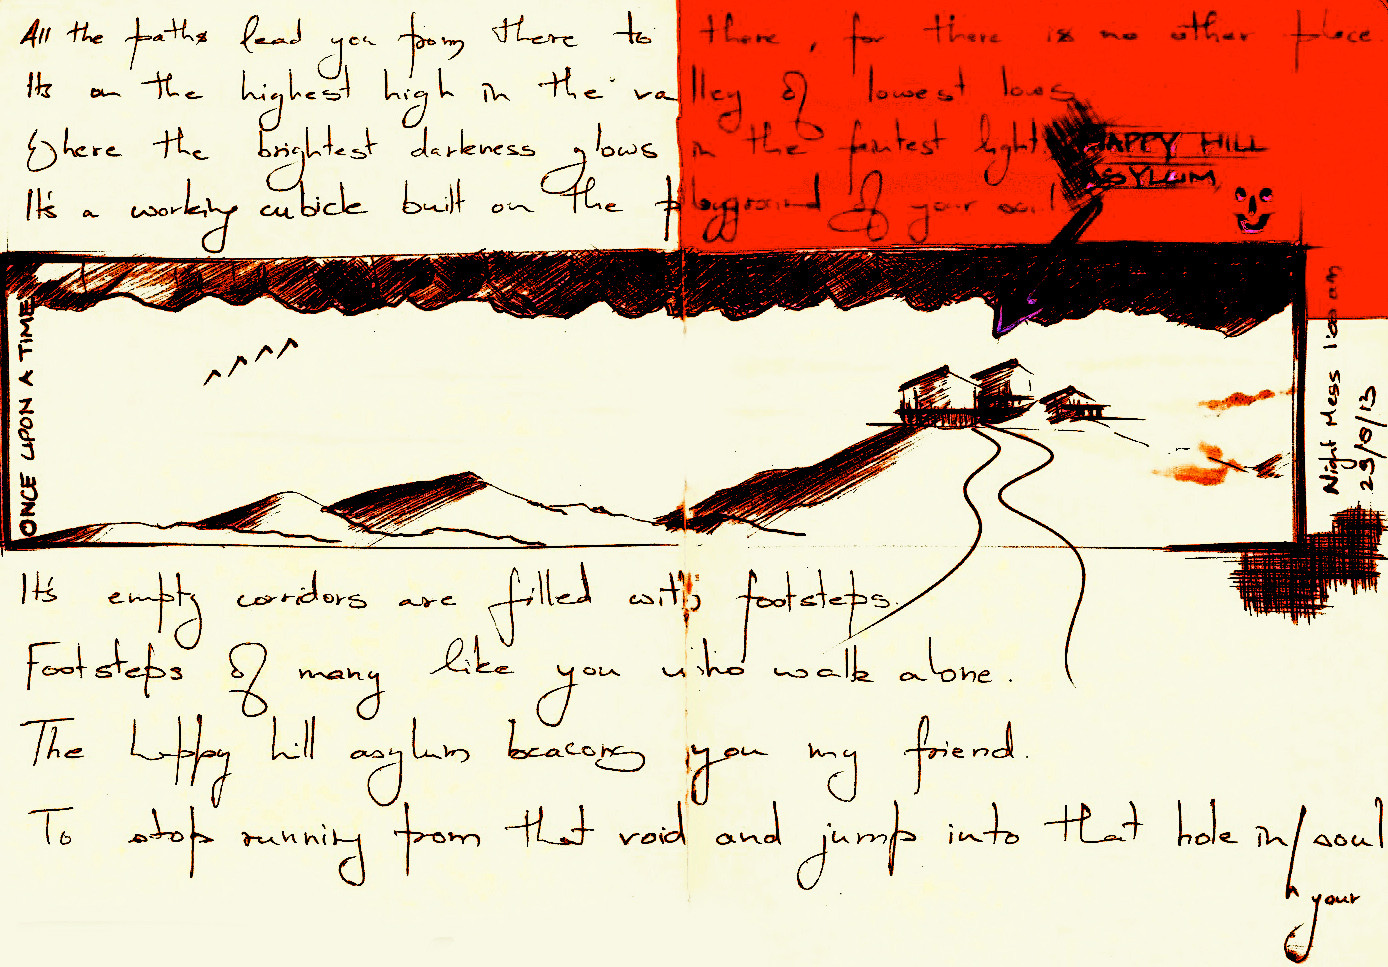 All the paths lead you from there to there, for there is no other place
Its on the highest high in the valley of lowest lows
Where the brightest darkness glows in the faintest light
It's a working cubicle built on the playground of your soul
HAPPY HILL
ASYLUM
ONCE UPON A TIME
Night Mess 1:00 am
29/8/13
It's empty corridors are filled with footsteps.
Footsteps of many like you who walk alone.
The happy hill asylum beacons you my friend.
To stop running from that void and jump into that hole in/soul
your